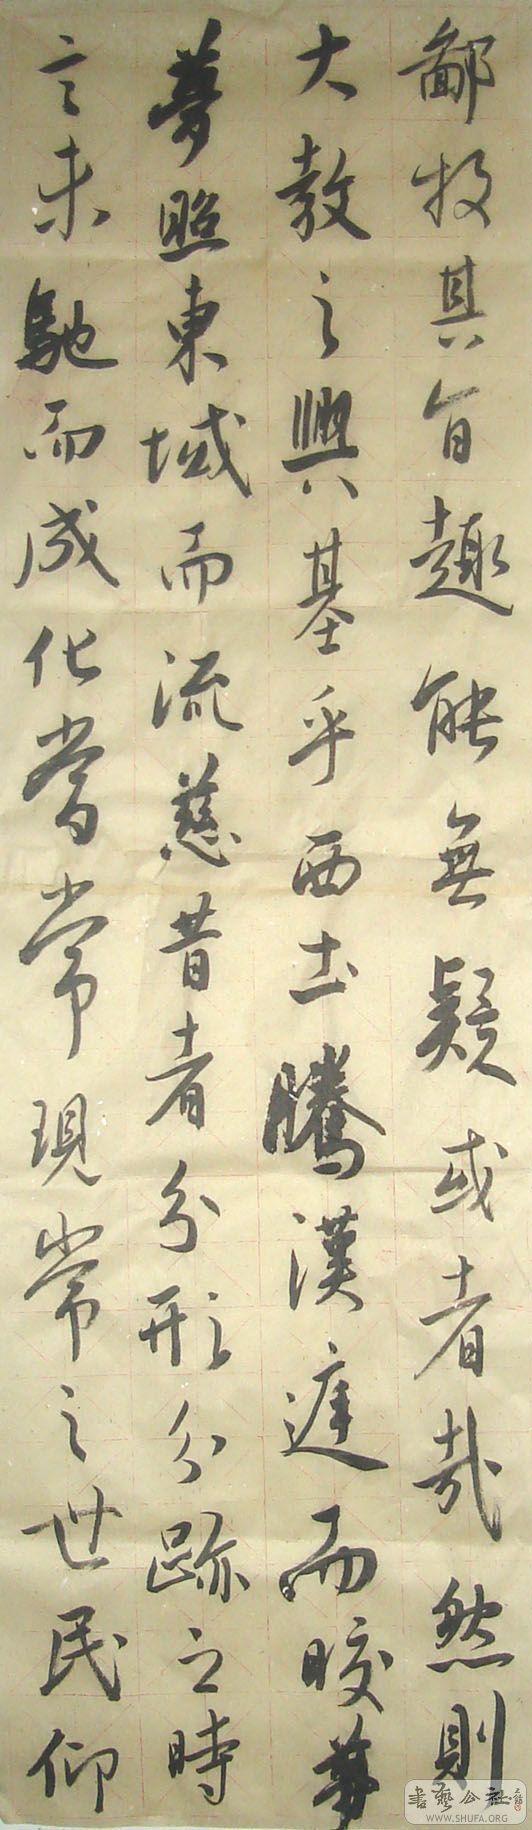 鄙投其旨趣能無疑或者哉然則
大教之興基乎西土騰漢庭而皎夢
夢照東域而流慈昔者分形分跡之時
言未馳而成化當常現常之世民仰
書藝公社
WWW.SHUFA.ORG